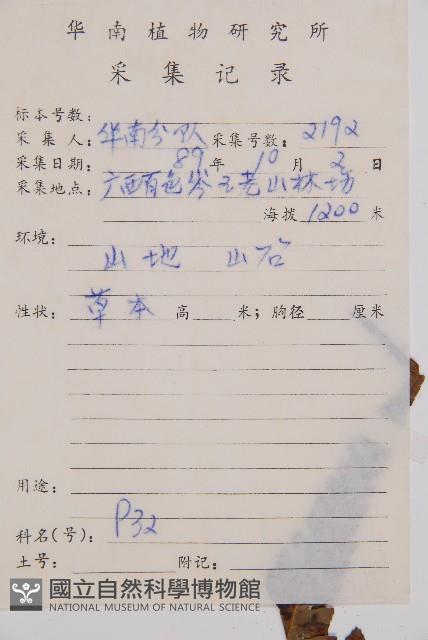 华南植物研究所
采集记录
标本号数：
采集人：华南分队 采集号数：2192
采集日期：89年10月2日
采集地点：广西百色岑王老山林场
海拨 1200 米
环境：
山地 山谷
性状：草本 高 米；胸径 厘米
用途：
科名(号)：P32
土号： 附记：
國立自然科學博物館
NATIONAL MUSEUM OF NATURAL SCIENCE